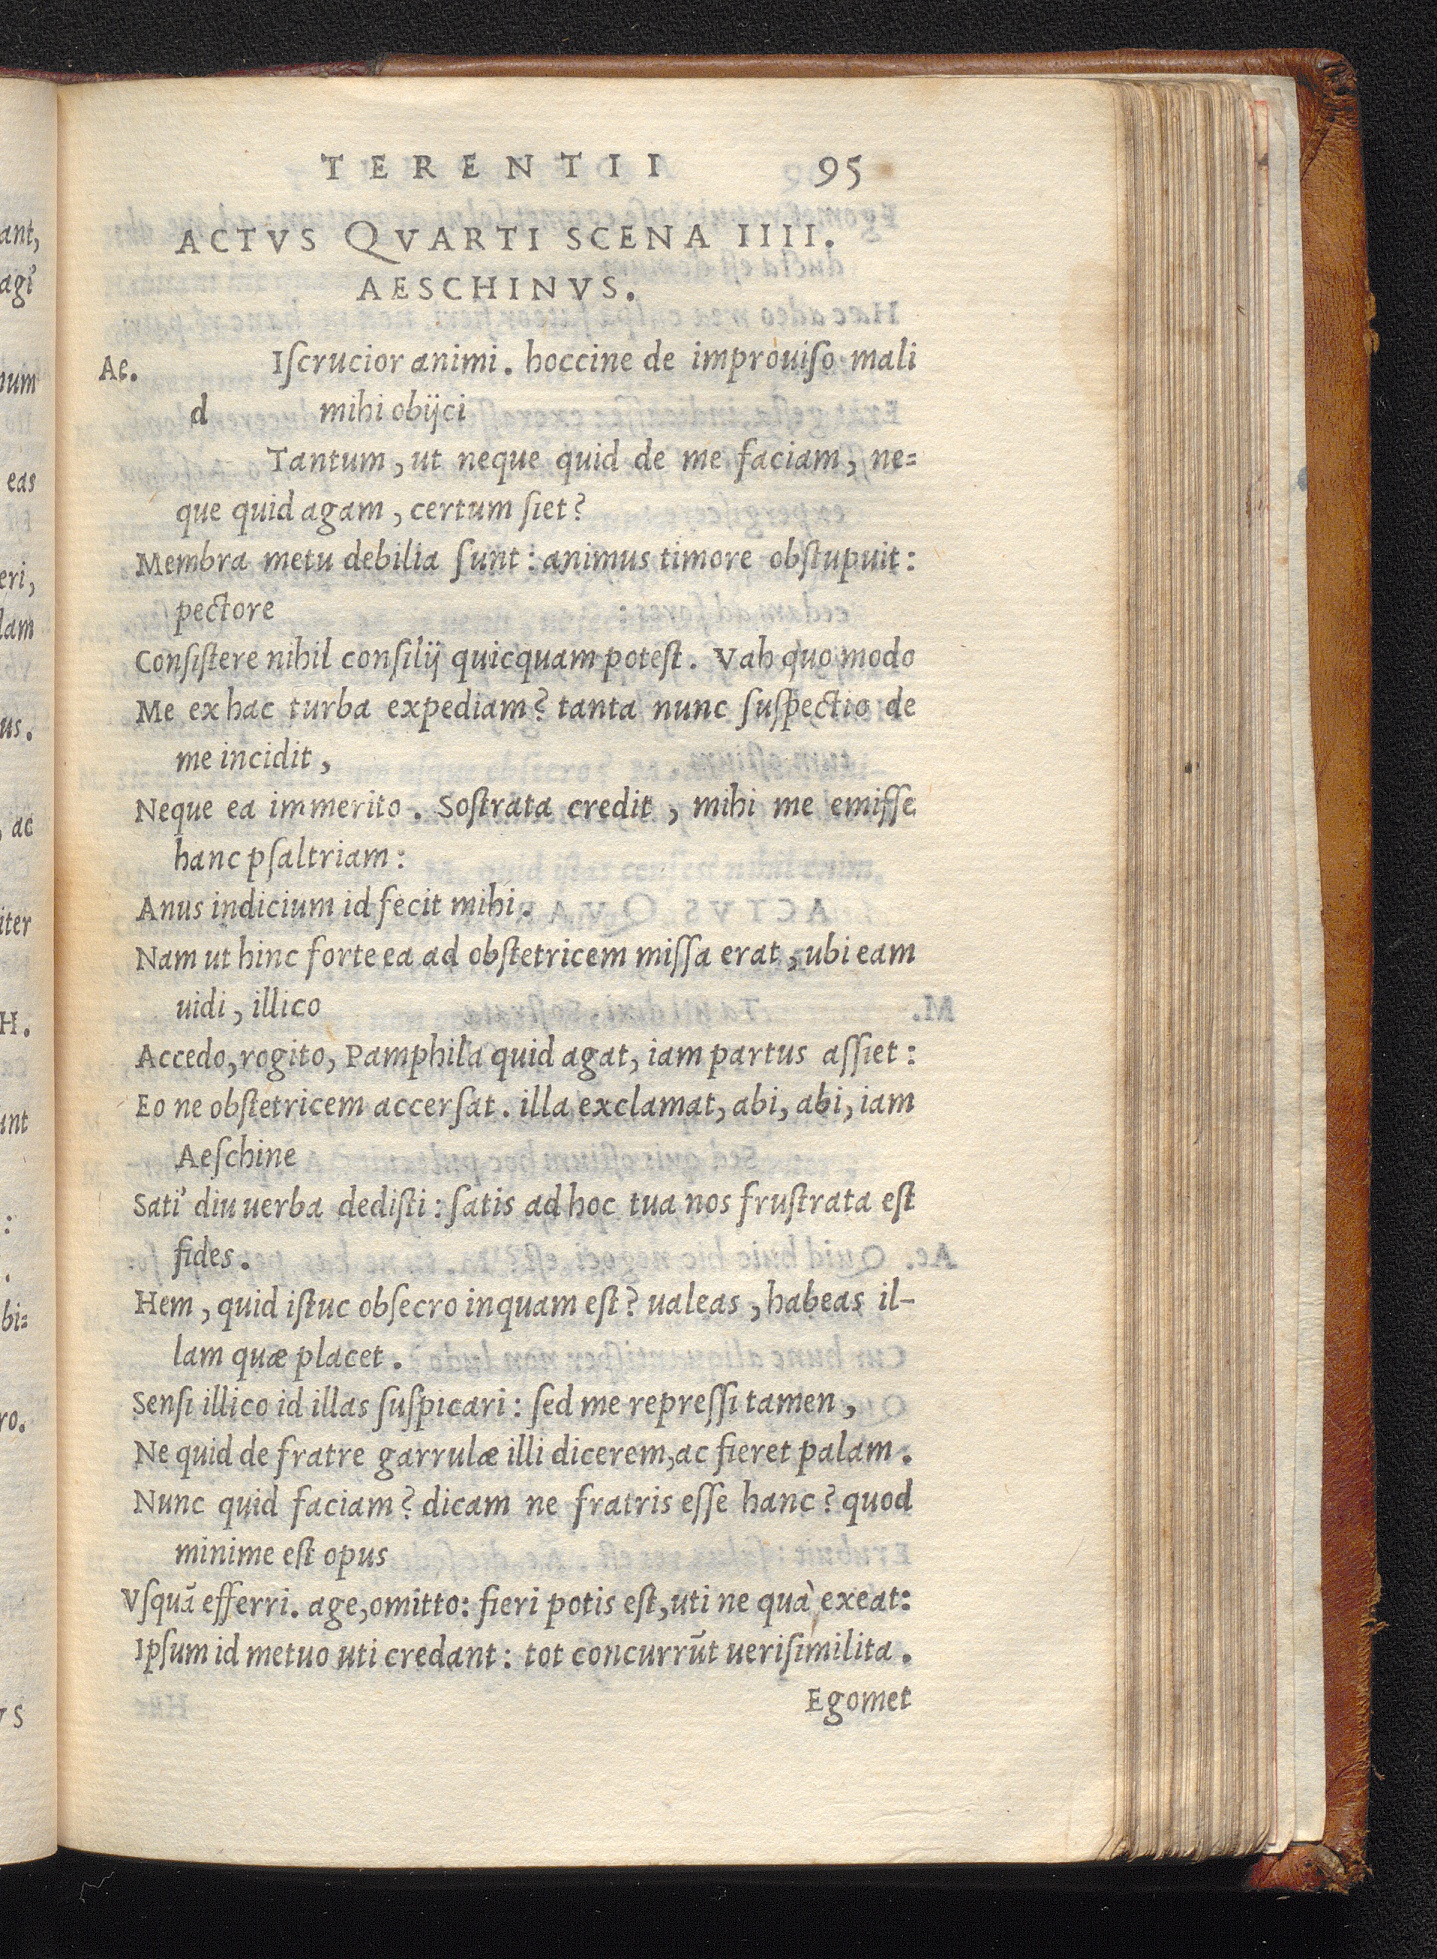 ant,
agi'
num
eas
eri,
dam
us.
ac
iter
H.
unt
:
.
bi=
ro.
VS
TERENTII 95
ACTVS QVARTI SCENA IIII.
AESCHINVS.
Ae. Iſcrucior animi. hoccine de improuiſo mali
d mihi obijci
Tantum, ut neque quid de me faciam, ne=
que quid agam, certum ſiet?
Membra metu debilia ſunt: animus timore obſtupuit:
pectore
Conſiſtere nihil conſilij quicquam poteſt. Vah quo modo
Me ex hac turba expediam? tanta nunc ſuſpectio de
me incidit,
Neque ea immerito. Soſtrata credit, mihi me emiſſe
hanc pſaltriam:
Anus indicium id fecit mihi.
Nam ut hinc forte ea ad obſtetricem miſſa erat, ubi eam
uidi, illico
Accedo, rogito, Pamphila quid agat, iam partus aſſiet:
Eo ne obſtetricem accerſat. illa exclamat, abi, abi, iam
Aeſchine
Sati' diu uerba dediſti: ſatis ad hoc tua nos fruſtrata eſt
fides.
Hem, quid iſtuc obſecro inquam eſt? ualeas, habeas il-
lam quæ placet.
Senſi illico id illas ſuſpicari: ſed me repreſſi tamen,
Ne quid de fratre garrulæ illi dicerem, ac fieret palam.
Nunc quid faciam? dicam ne fratris eſſe hanc? quod
minime eſt opus
Vſquã efferri. age, omitto: fieri potis eſt, uti ne quà exeat:
Ipſum id metuo uti credant: tot concurrūt ueriſimilita.
Egomet